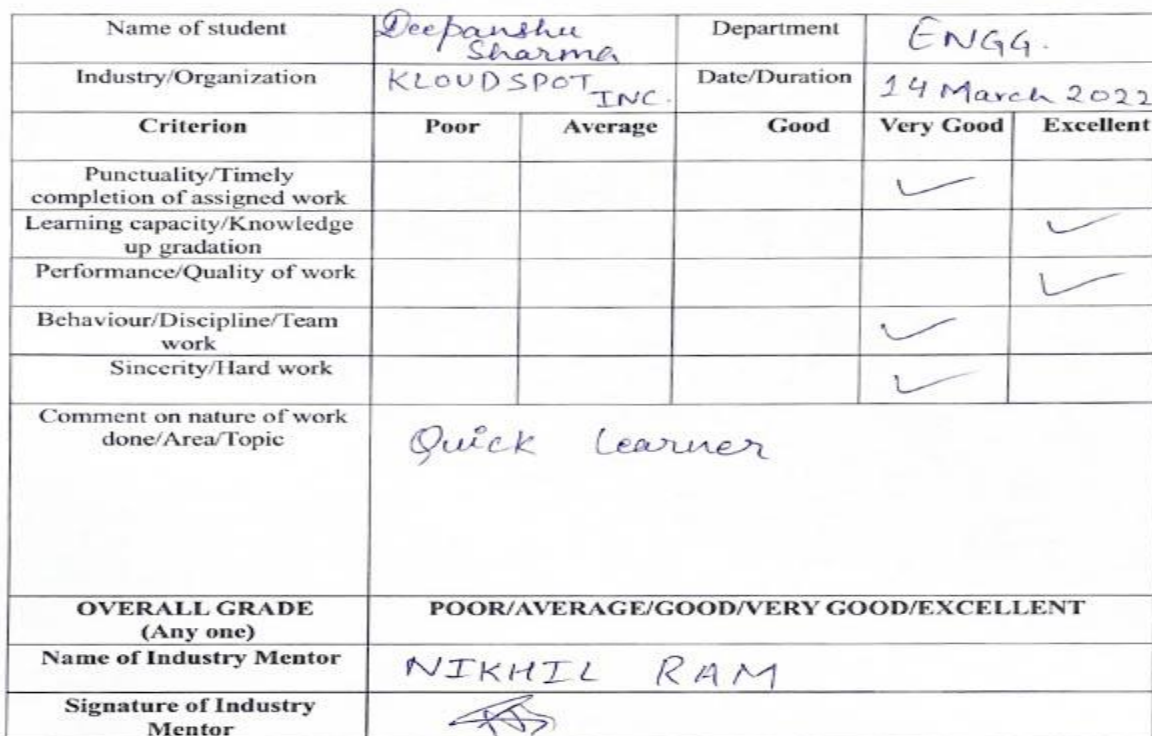 Name of student
Deepanshu
Sharma
Department
ENGG.
Industry/Organization
KLOUDSPOT
INC.
Date/Duration
14 March 2022
Criterion
Poor
Average
Good
Very Good
Excellent
Punctuality/Timely
completion of assigned work
Learning capacity/Knowledge
up gradation
Performance/Quality of work
Behaviour/Discipline/Team
work
Sincerity/Hard work
Comment on nature of work
done/Area/Topic
Quick Learner
OVERALL GRADE
(Any one)
POOR/AVERAGE/GOOD/VERY GOOD/EXCELLENT
Name of Industry Mentor
NIKHIL RAM
Signature of Industry
Mentor